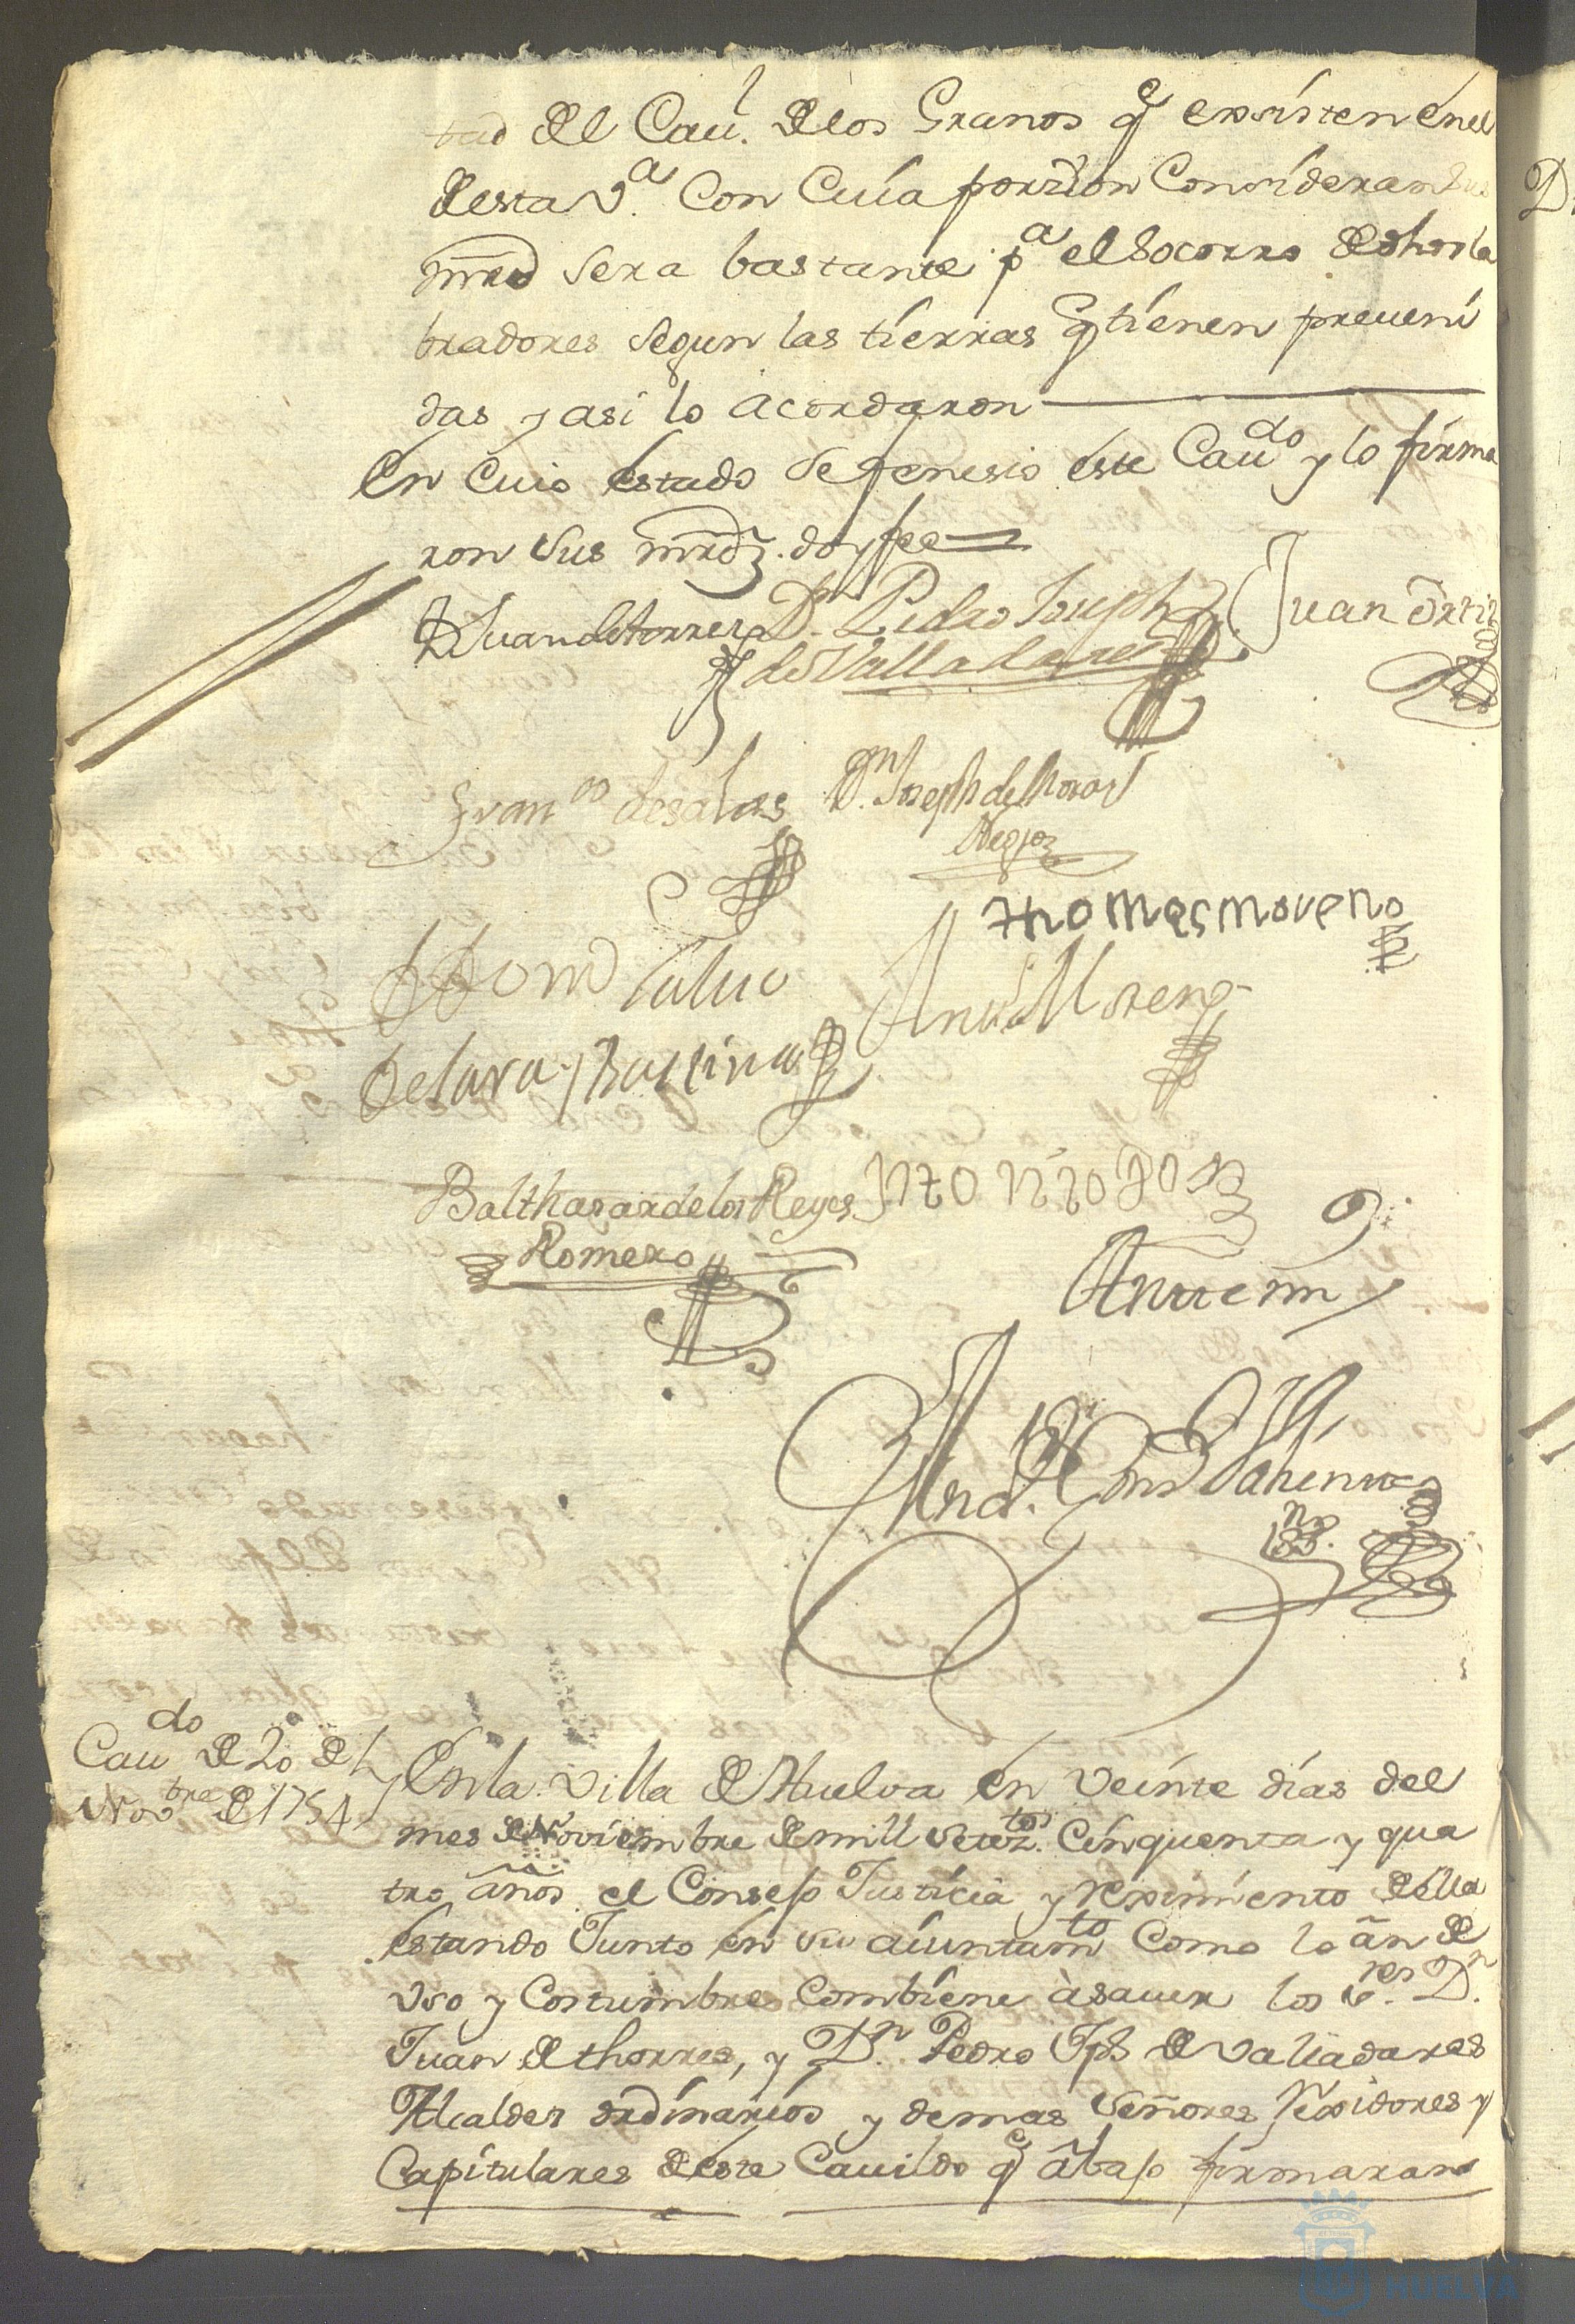 tad del Cau.l de los Granos q.e existen en el
desta V.a Con Cuia porzion Consideran sus
mrzd sera bastante p.a el Socorro de dhos la
bradores segun las tierras q tienen preueni
das y asi lo acordaron
En cuio estado se fenesio este Cau.do y lo firma
ron sus mrdz. doy fee
D Juan de torres Dn. Pedro Joseph Juan Ortiz
de Valladares
Fran.co de salas Dn. Joseph de
thomas moreno
Moreno
de lara y
Balthasar de los Reyes
Romero
Ante mi
Cau.do de 20 de
Nov.bre de 1754
En la Villa de Huelva en veinte dias del
mes de Noviembre de mill Setez.tos Cinquenta y qua
tro años el Consejo Justicia y reximiento della
estando Junto en su aiuntam.to Como lo an de
Uso y Costumbre Combiene a sauer los S.res D.n
Juan de thorres, y D.n Pedro Jph de Valladares
Alcaldes ordinarios y demas Señores rexidores y
Capitulares deste Cauildo q abajo firmaran
HUELVA